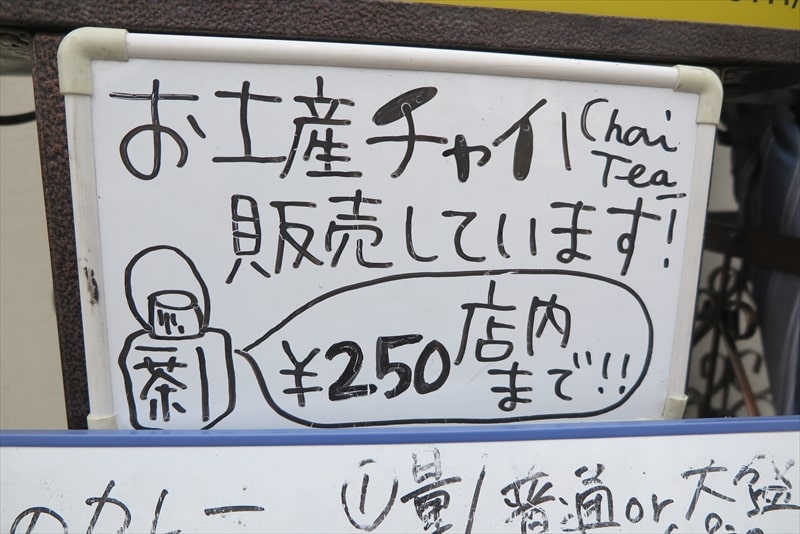 お土産チャイ! Chai
Tea
販売しています!
¥250 店内
まで!!
茶
のカレー ①量/普通or大盛